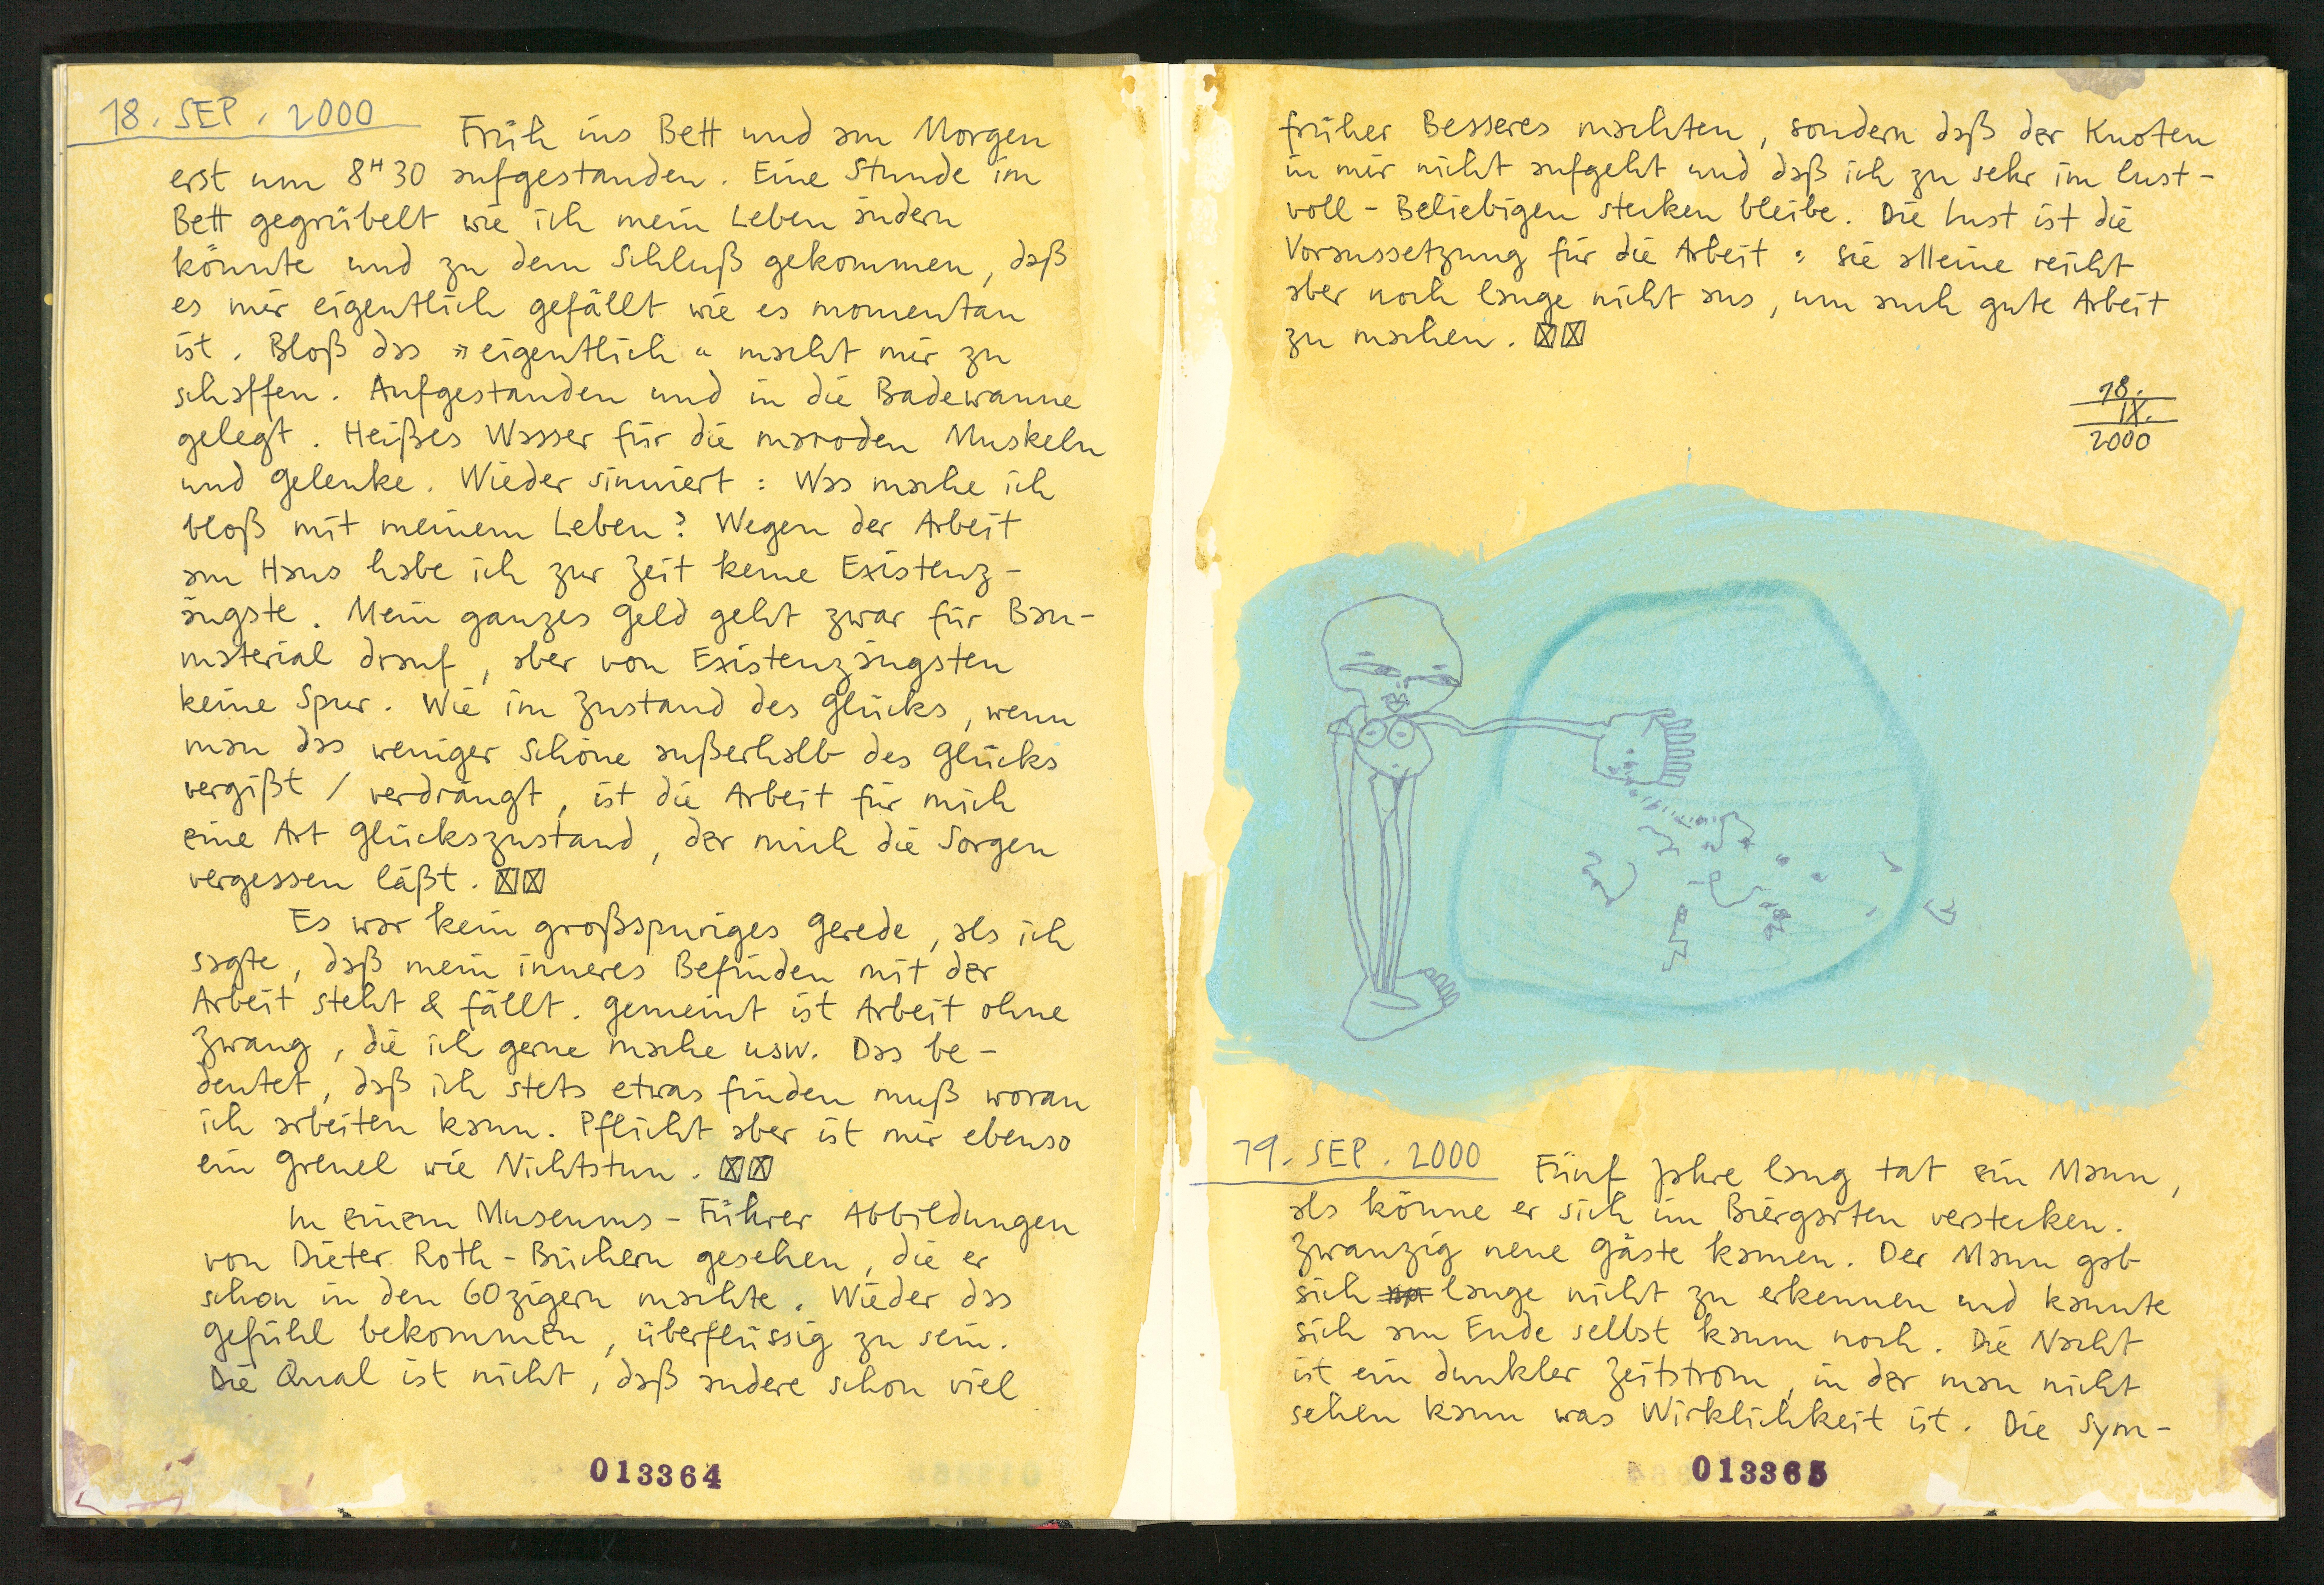 18. SEP. 2000
Früh ins Bett und am Morgen
erst um 8H30 aufgestanden. Eine Stunde im
Bett gegrübelt wie ich mein Leben ändern
könnte und zu dem Schluß gekommen, daß
es mir eigentlich gefällt wie es momentan
ist. Bloß das »eigentlich« macht mir zu
schaffen. Aufgestanden und in die Badewanne
gelegt. Heißes Wasser für die maroden Muskeln
und Gelenke. Wieder sinniert: Was mache ich
bloß mit meinem Leben? Wegen der Arbeit
am Haus habe ich zur Zeit keine Existenz-
ängste. Mein ganzes Geld geht zwar für Bau-
material drauf, aber von Existenzängsten
keine Spur. Wie im Zustand des Glücks, wenn
man das weniger Schöne außerhalb des Glücks
vergißt / verdrängt, ist die Arbeit für mich
eine Art Glückszustand, der mich die Sorgen
vergessen läßt. ☒☒
Es war kein großspuriges Gerede, als ich
sagte, daß mein inneres Befinden mit der
Arbeit steht & fällt. Gemeint ist Arbeit ohne
Zwang, die ich gerne mache usw. Das be-
deutet, daß ich stets etwas finden muß woran
ich arbeiten kann. Pflicht aber ist mir ebenso
ein Greuel wie Nichtstun. ☒☒
In einem Museums-Führer Abbildungen
von Dieter Roth-Büchern gesehen, die er
schon in den 60zigern machte. Wieder das
Gefühl bekommen, überflüssig zu sein.
Die Qual ist nicht, daß andere schon viel
013364
früher Besseres machten, sondern daß der Knoten
in mir nicht aufgeht und daß ich zu sehr im lust-
voll-Beliebigen stecken bleibe. Die Lust ist die
Voraussetzung für die Arbeit: sie alleine reicht
aber noch lange nicht aus, um auch gute Arbeit
zu machen. ☒☒
18.
IX.
2000
19. SEP. 2000
Fünf Jahre lang tat ein Mann,
als könne er sich im Biergarten verstecken.
Zwanzig neue Gäste kamen. Der Mann gab
sich lange nicht zu erkennen und kannte
sich am Ende selbst kaum noch. Die Nacht
ist ein dunkler Zeitstrom, in der man nicht
sehen kann was Wirklichkeit ist. Die Sym-
013365